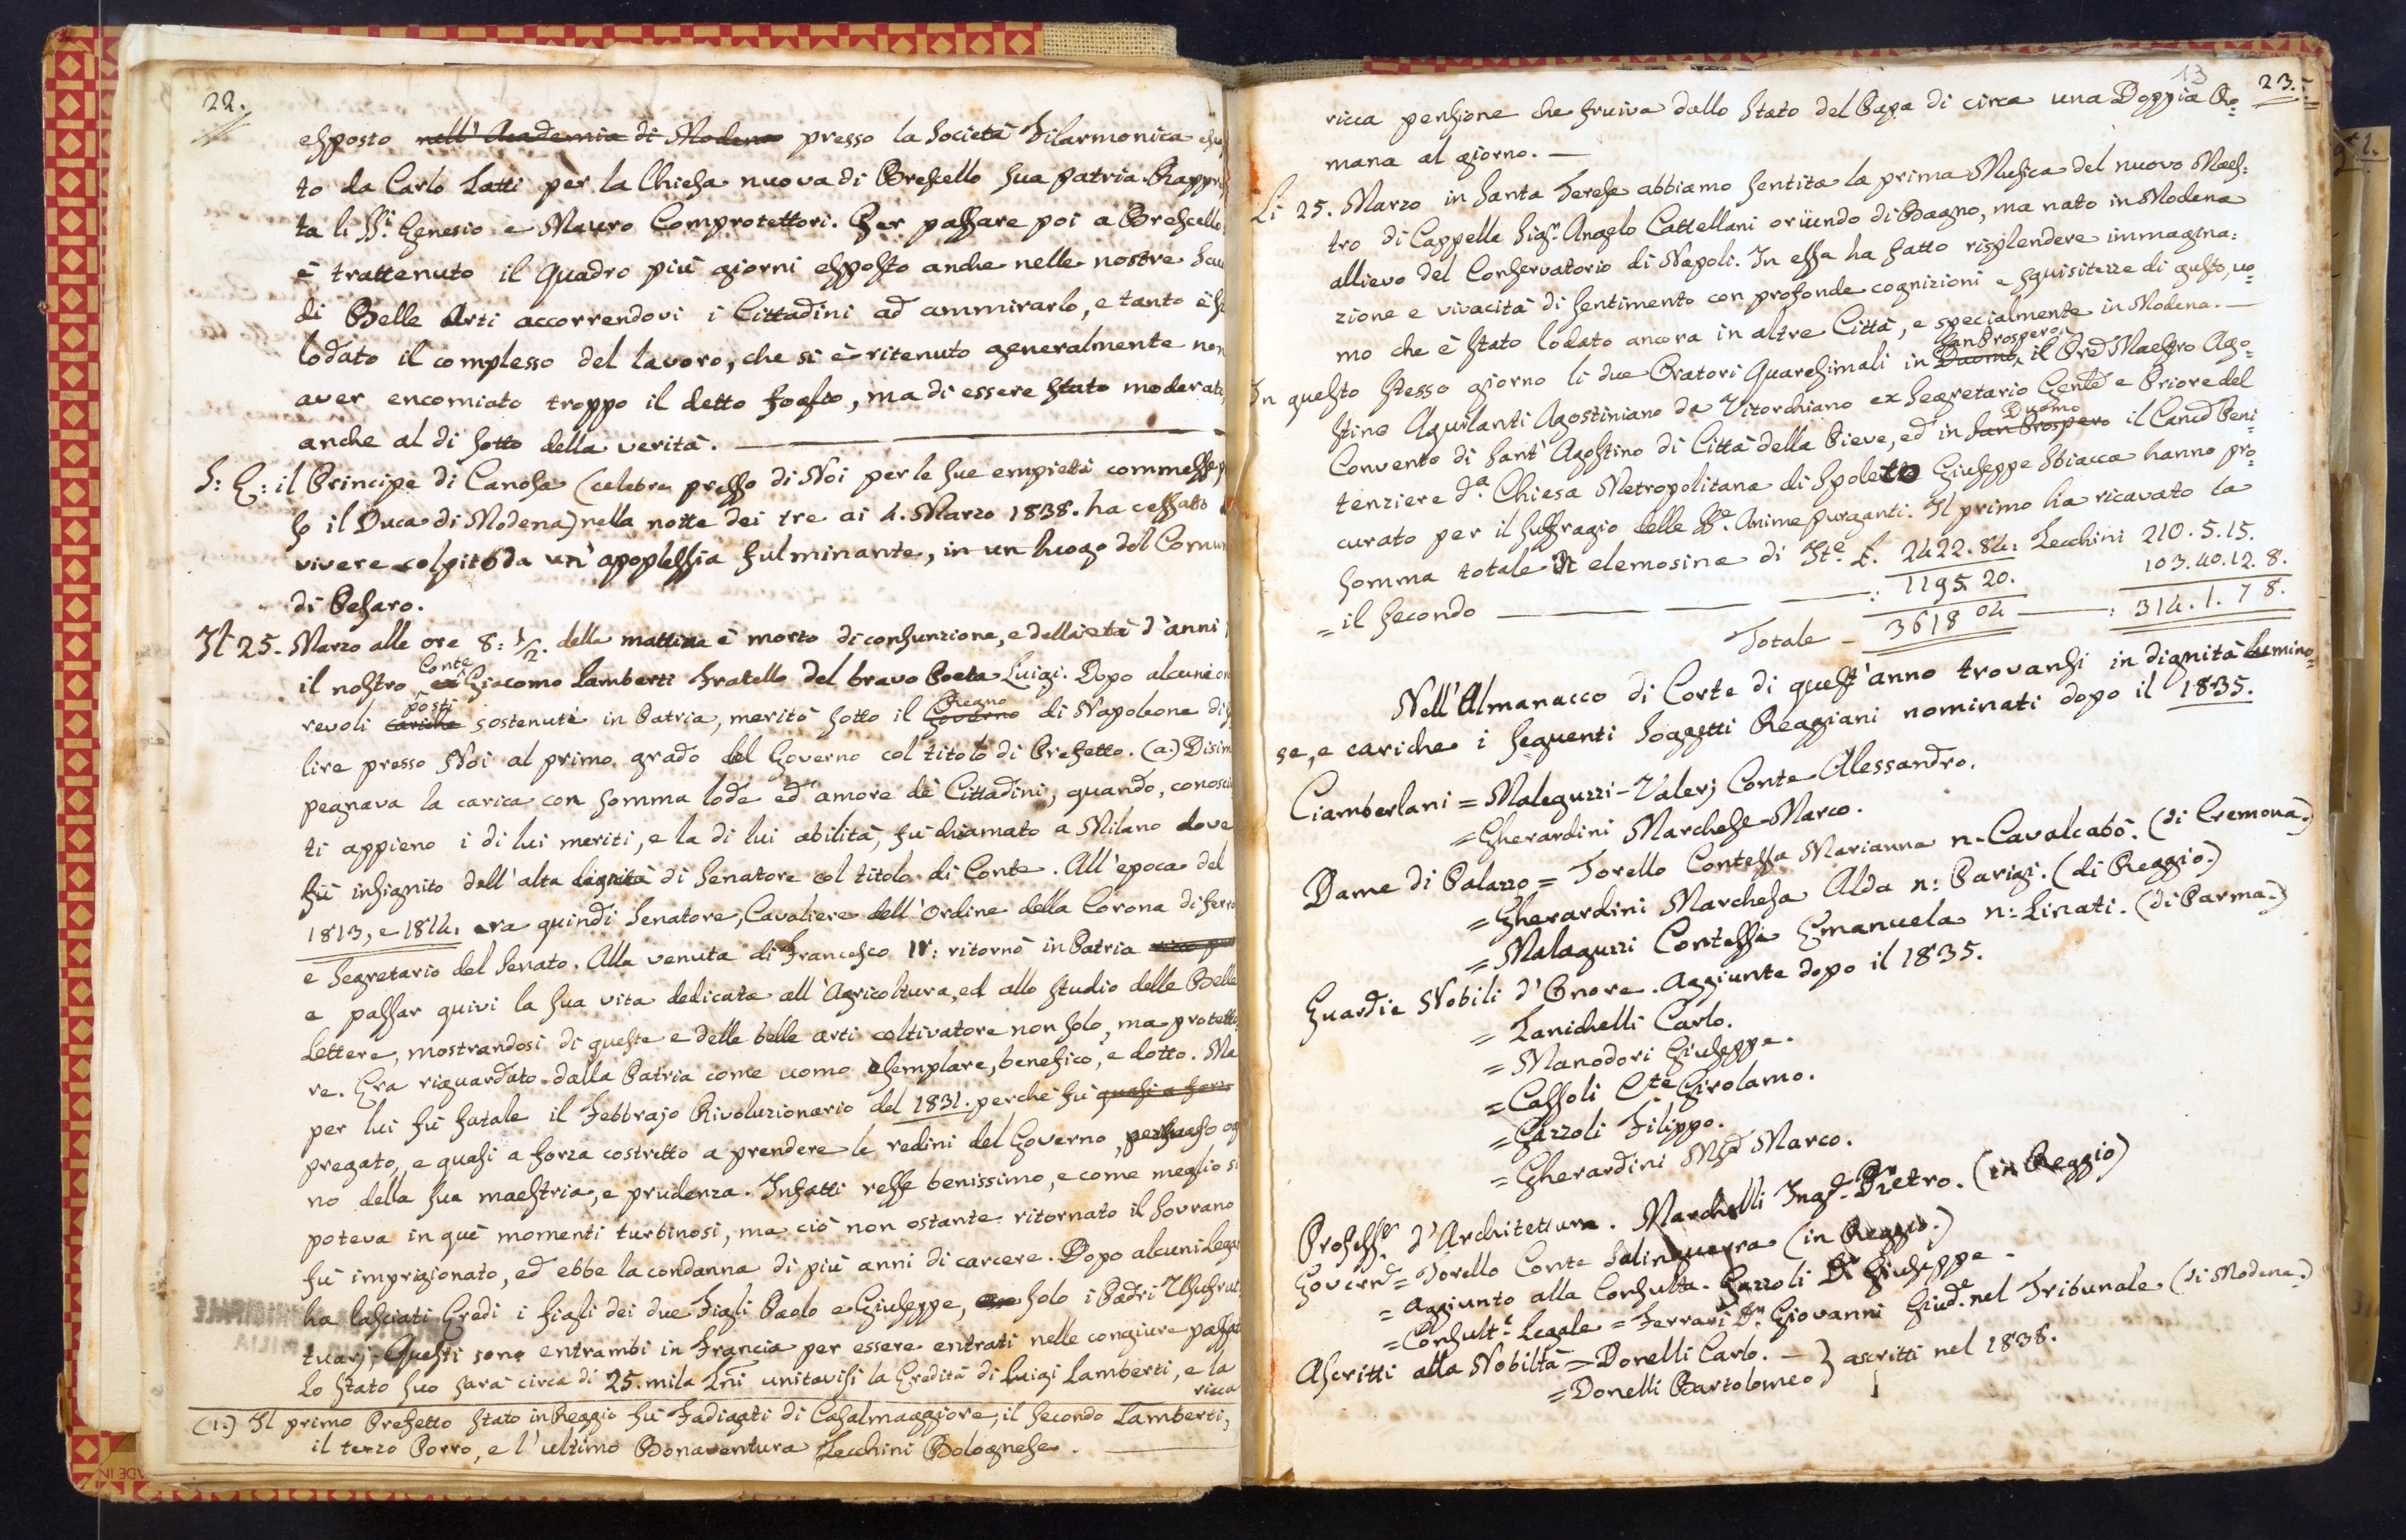 22.
esposto nell'Accademia di Modena presso la Società Filarmonica
to da Carlo Zatti per la Chiesa nuova di Brescello sua patria. Rappre
ta li SS.i Genesio e Mauro Comprotettori. Per passare poi a Brescello
è trattenuto il Quadro più giorni esposto anche nelle nostre
di Belle Arti accorrendovi i Cittadini ad ammirarlo, e tanto è
lodato il complesso del lavoro, che si è ritenuto generalmente non
aver encomiato troppo il detto foglio, ma di essere stato moderato,
anche al di sotto della verità. —
S: E: il Principe di Canosa (celebre presso di Noi per le sue empietà commesse
so il Duca di Modena) nella notte dei tre ai 4. Marzo 1838. ha cessato
vivere colpito da un'apoplessia fulminante, in un luogo del Comun
di Pesaro.
Il 25. Marzo alle ore 8: 1/2. della mattina è morto di consunzione, e della età d'anni
Conte
il nostro Giacomo Lamberti Fratello del bravo Poeta Luigi. Dopo alcuni
posti Regno
revoli cariche sostenute in Patria, meritò sotto il Governo di Napoleone di
lire presso Noi al primo grado del Governo col titolo di Prefetto. (a.) Disim
pegnava la carica con somma lode ed amore de' Cittadini, quando, conosciu
ti appieno i di lui meriti, e la di lui abilità, fù chiamato a Milano dove
fù insignito dell'alta dignità di Senatore col titolo di Conte. All'epoca del
1813, e 1814. era quindi Senatore, Cavaliere dell'Ordine della Corona di ferro
e Segretario del Senato. Alla venuta di Francesco IV: ritornò in Patria
a passar quivi la sua vita dedicata all'Agricoltura, ed allo studio delle Belle
Lettere, mostrandosi di queste e delle belle arti coltivatore non solo, ma protetto
re. Era riguardato dalla Patria come uomo esemplare, benefico, e dotto. Ma
per lui fù fatale il Febbrajo Rivoluzionario del 1831. perchè fù quasi a forza
pregato, e quasi a forza costretto a prendere le redini del Governo, persuaso og
no della sua maestria, e prudenza. Infatti resse benissimo, e come meglio si
poteva in què momenti turbinosi, ma ciò non ostante ritornato il Sovrano
fù imprigionato, ed ebbe la condanna di più anni di carcere. Dopo alcuni Lega
ha lasciati Eredi i figli dei due Figli Paolo e Giuseppe, solo i Padri Usufrut
tuarj. Questi sono entrambi in Francia per essere entrati nelle congiure passat
Lo stato suo sarà circa di 25. mila Zni unitavisi la Eredità di Luigi Lamberti, e la
ricca
(1.) Il primo Prefetto stato in Reggio fù Fadigati di Casalmaggiore, il secondo Lamberti,
il terzo Porro, e l'ultimo Bonaventura Zecchini Bolognese. —
13 23.
ricca pensione che fruiva dallo Stato del Papa di circa una Doppia Ro=
mana al giorno. —
Li 25. Marzo in Santa Teresa abbiamo sentita la prima Musica del nuovo Maes:
tro di Cappella Sigr. Angelo Cattellani oriundo di Bagno, ma nato in Modena
allievo del Conservatorio di Napoli. In essa ha fatto risplendere immagina:
zione e vivacità di sentimento con profonde cognizioni e squisitezze di gusto, uo=
mo che è stato lodato ancora in altre Città, e specialmente in Modena. —
San Prospero
In questo stesso giorno li due Oratori Quaresimali in Duomo, il Pred. Maestro Ago=
stino Aquilanti Agostiniano da Vitorchiano ex Segretario Genle e Priore del
Duomo
Convento di Sant'Agostino di Città della Pieve, ed in San Prospero il Cancd Peni
tenziere d.a Chiesa Metropolitana di Spoleto Giuseppe Sbiacca hanno pro=
curato per il suffragio delle SS.e Anime purganti. Il primo ha ricavato la
somma totale in elemosina di It.e £. 2422.84. Zecchini 210.5.15.
= il secondo — — — : 1195 20. 103.40.12.8.
Totale — 3618 04 — : 314.1.7 8.
Nell'Almanacco di Corte di quest'anno trovansi in dignità lumino=
se, e cariche i seguenti Soggetti Reggiani nominati dopo il 1835.
Ciamberlani = Maleguzzi-Valerj Conte Alessandro.
= Gherardini Marchese Marco.
Dame di Palazzo = Torello Contessa Marianna n. Cavalcabò. (di Cremona.)
= Gherardini Marchesa Alda n: Parigi. (di Reggio.)
= Malaguzzi Contessa Emanuela n: Linati. (di Parma.)
Guardie Nobili d'Onore. Aggiunte dopo il 1835.
= Zanichelli Carlo.
= Manodori Giuseppe.
= Cassoli Cte Girolamo.
= Gazzoli Filippo.
= Gherardini Msd Marco.
Profess.r d'Architettura. Marchelli Ing.r Pietro. (in Reggio)
Govern.e = Torello Conte Salinguerra (in Reggio.)
= Aggiunto alla Consulta. Gazzoli Dr Giuseppe.
= Consult.e Legale = Ferrari Dr. Giovanni Giud.e nel Tribunale (di Modena.)
Ascritti alla Nobiltà = Donelli Carlo. — } ascritti nel 1838.
= Donelli Bartolomeo }